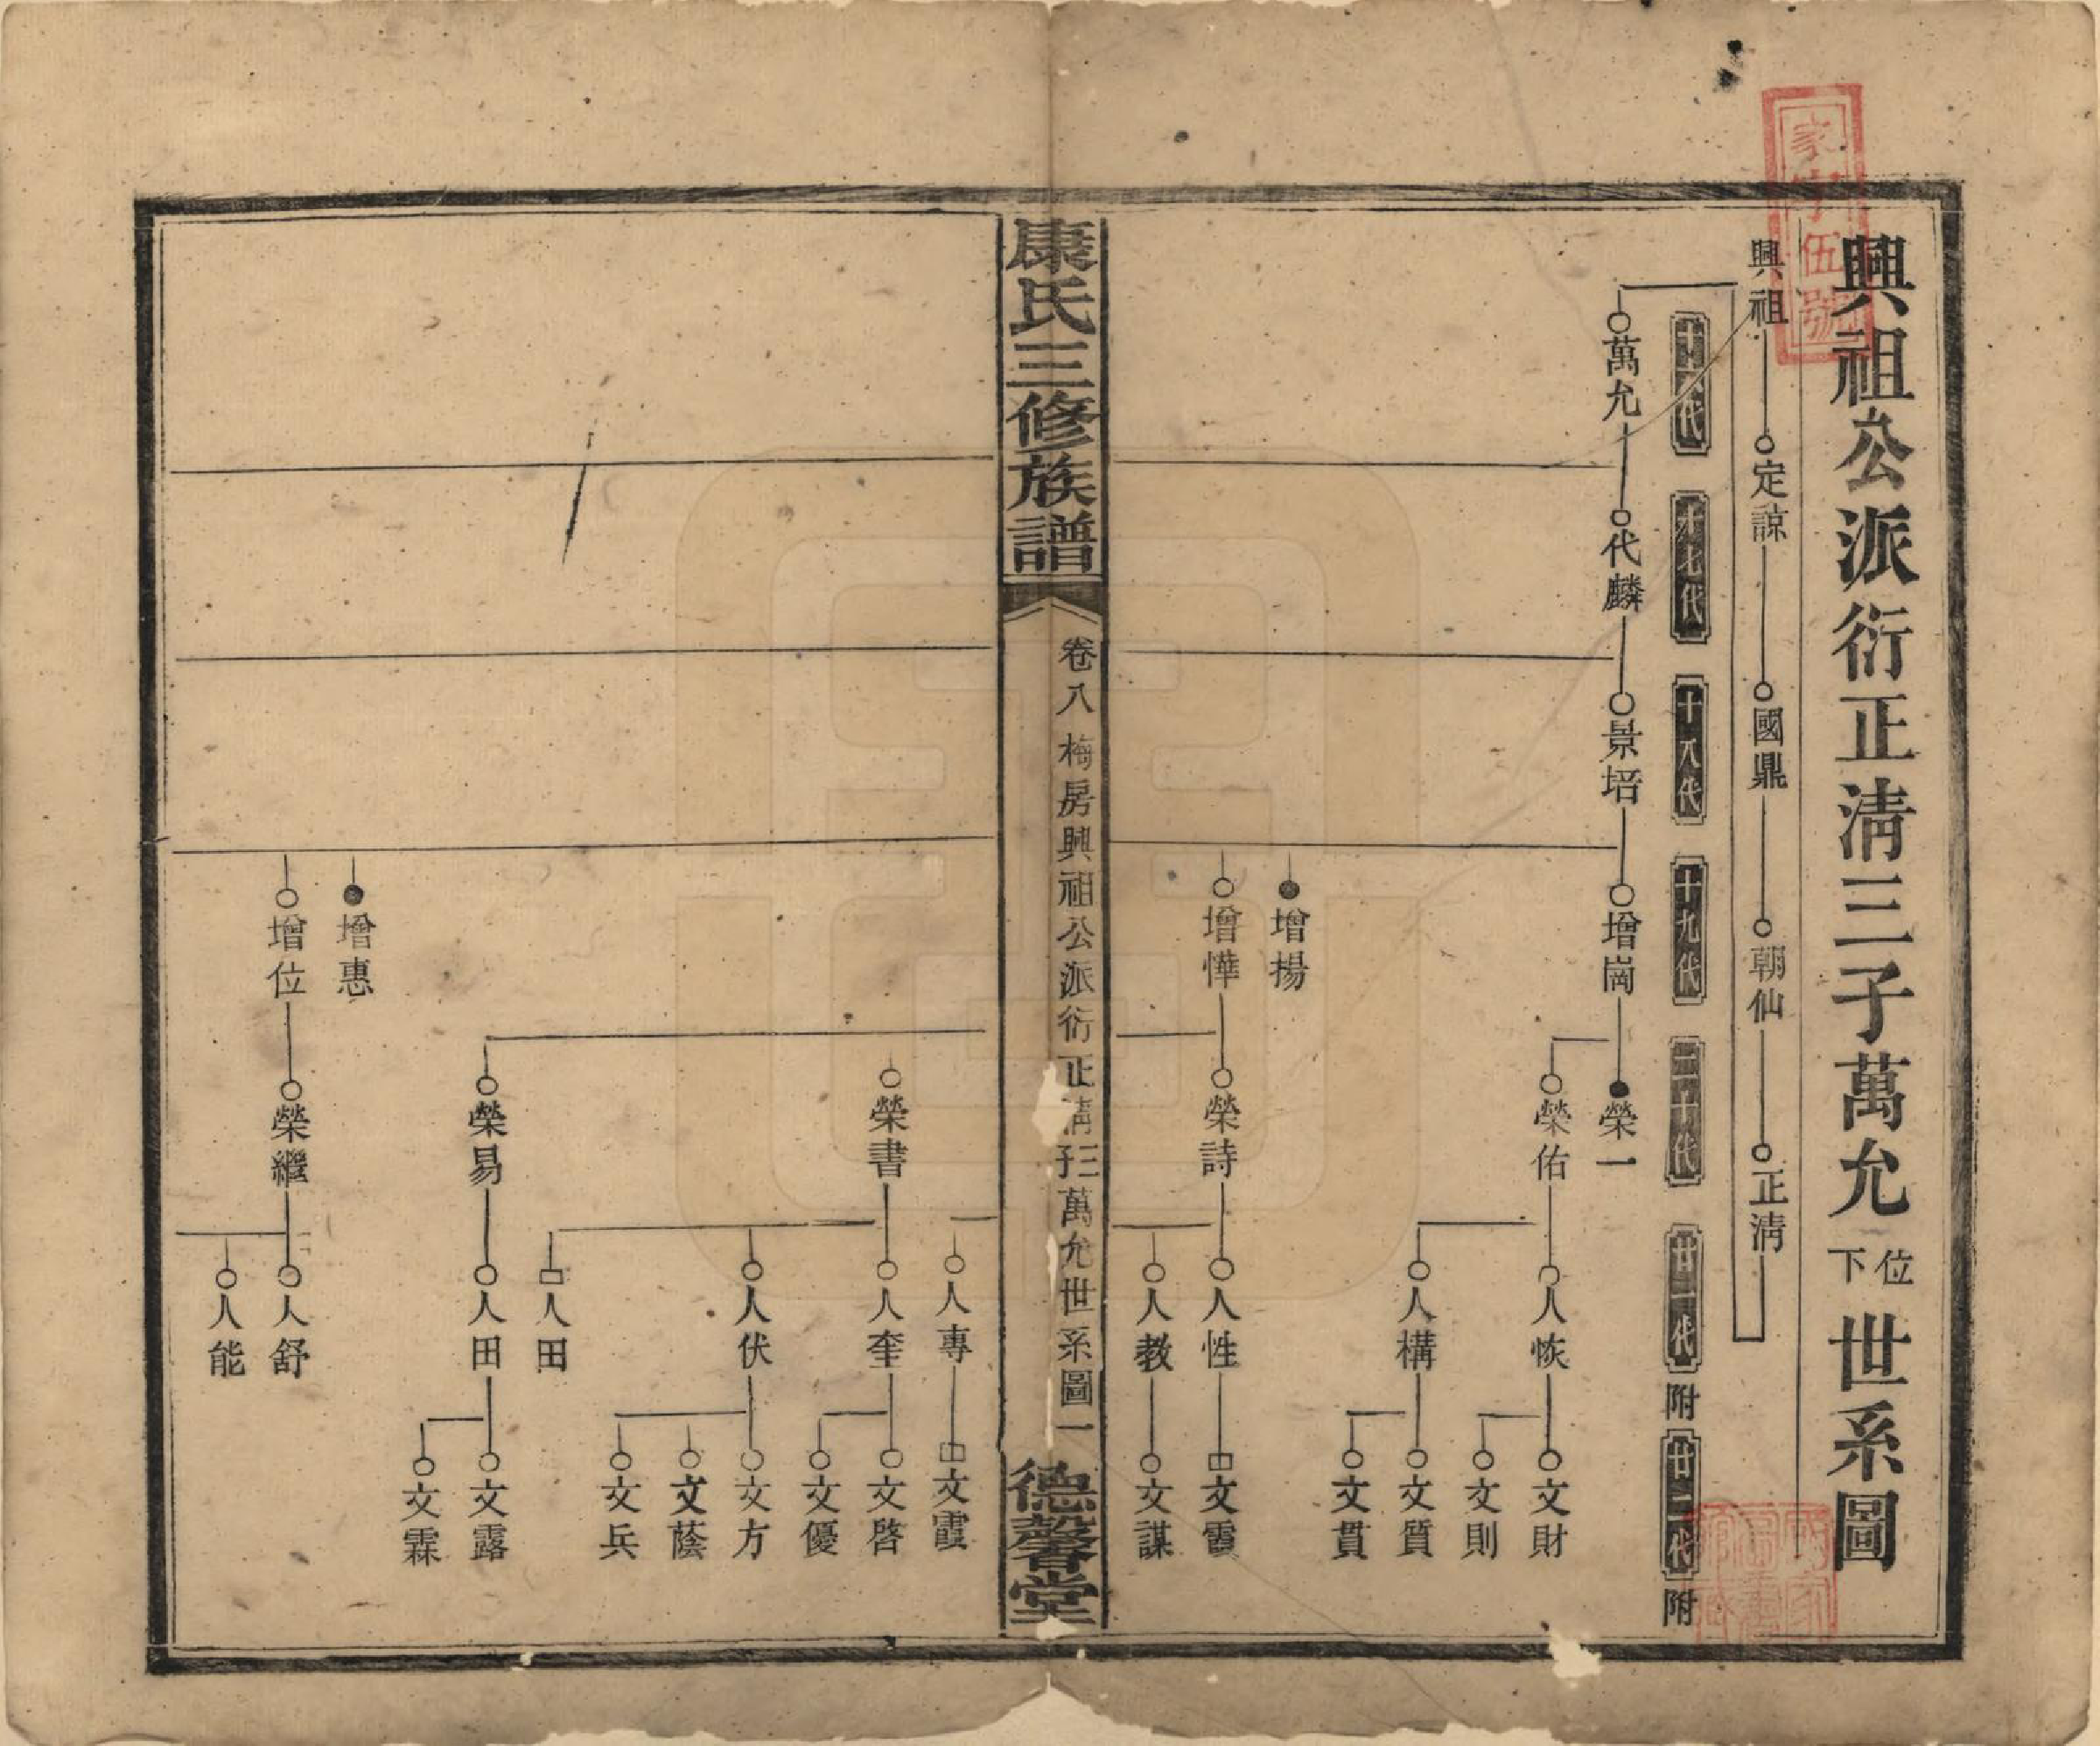 興祖公派衍正清三子萬允下位世系圖
興祖 定諒 國鼎 朝仙 正清
十六代 十七代 十八代 十九代 二十代 廿一代 附 廿二代 附
萬允 代麟 景培 增崗 榮一
榮佑 人恢 文財
文則
人構 文質
文貫
增揚
增懽 榮詩 人性 文霞
人教 文謀
康氏三修族譜 卷八 梅房興祖公派衍正清三子萬允世系圖 一 德馨堂
人專 文霞
榮書 人奎 文啓
文優
人伏 文方
文蔭
文兵
人田
榮易 人田 文露
文霖
增惠
增位 榮繼 人舒
人能
家字伍號